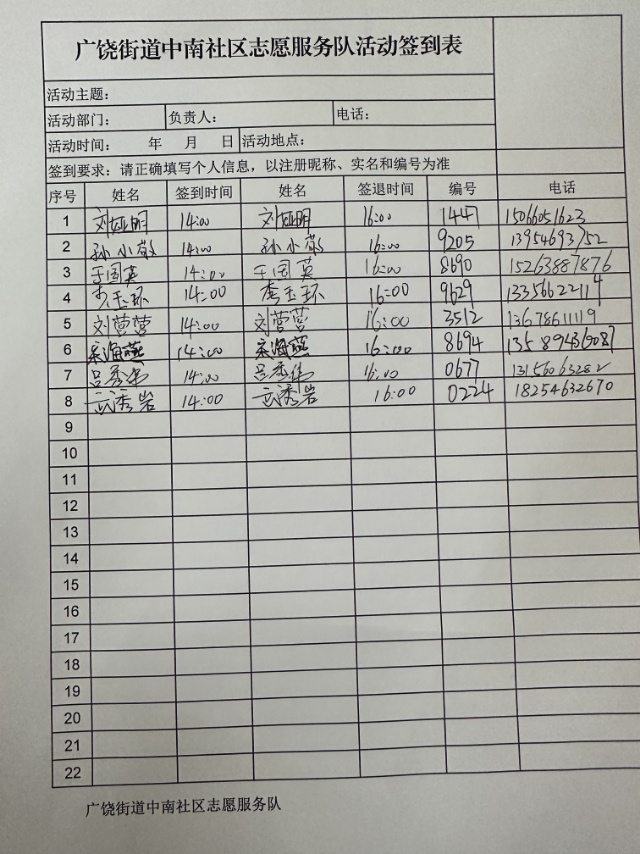 广饶街道中南社区志愿服务队活动签到表
活动主题：
活动部门： 负责人： 电话：
活动时间： 年 月 日 活动地点：
签到要求：请正确填写个人信息，以注册昵称、实名和编号为准
序号 姓名 签到时间 姓名 签退时间 编号 电话
1 刘娅明 14:00 刘娅明 16:00 1447 15066051623
2 孙小敏 14:00 孙小敏 16:00 9205 13954693752
3 于国英 14:00 于国英 16:00 8690 15263887876
4 李玉环 14:00 李玉环 16:00 9629 13356622114
5 刘营营 14:00 刘营营 16:00 3512 13678611119
6 海燕 14:00 海燕 16:00 8694 13589436087
7 吕秀伟 14:00 吕秀伟 16:00 0677 13156063282
8 武秀岩 14:00 武秀岩 16:00 0224 18254632670
9
10
11
12
13
14
15
16
17
18
19
20
21
22
广饶街道中南社区志愿服务队